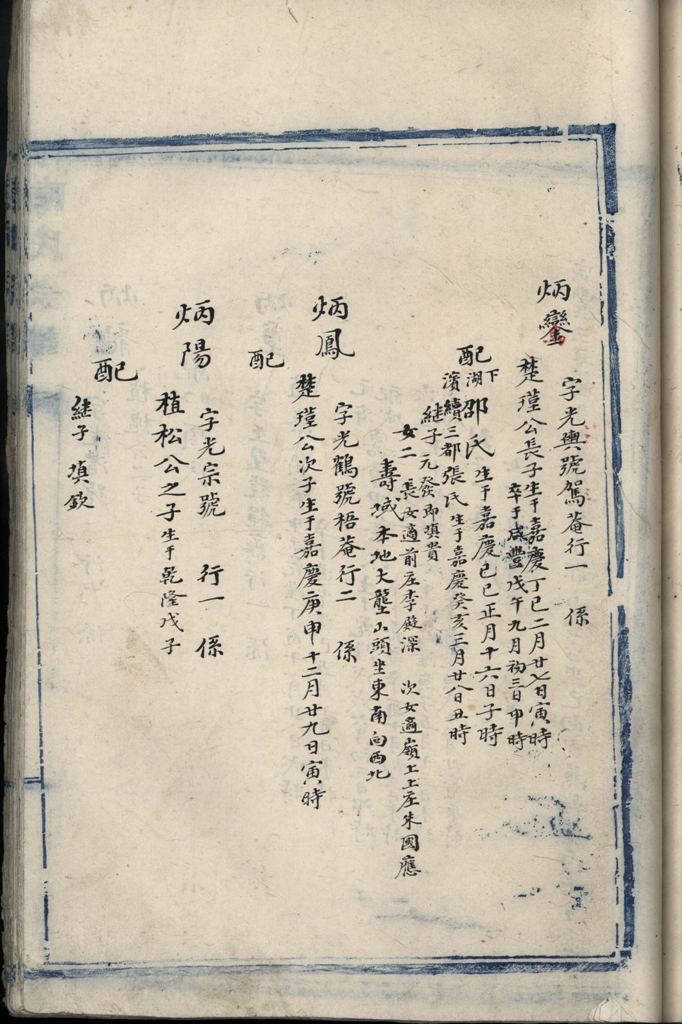 炳鑾
字光輿號駕菴行一 係
楚瑾公長子生于嘉慶丁巳二月廿七日寅時
卒于咸豐戊午九月初三日申時
配下湖邵氏生于嘉慶己巳正月十六日子時
濱續三都張氏生于嘉慶癸亥三月廿八日丑時
継子元發即填貴
女二 長女適前庄李殿深 次女適嶺上上庄朱國應
壽域本地大壟山頭坐東南向西北
炳鳳
字光鶴號梧菴行二 係
楚瑾公次子生于嘉慶庚申十二月廿九日寅時
配
炳陽
字光宗號 行一 係
植松公之子生于乾隆戊子
配
継子 填欽